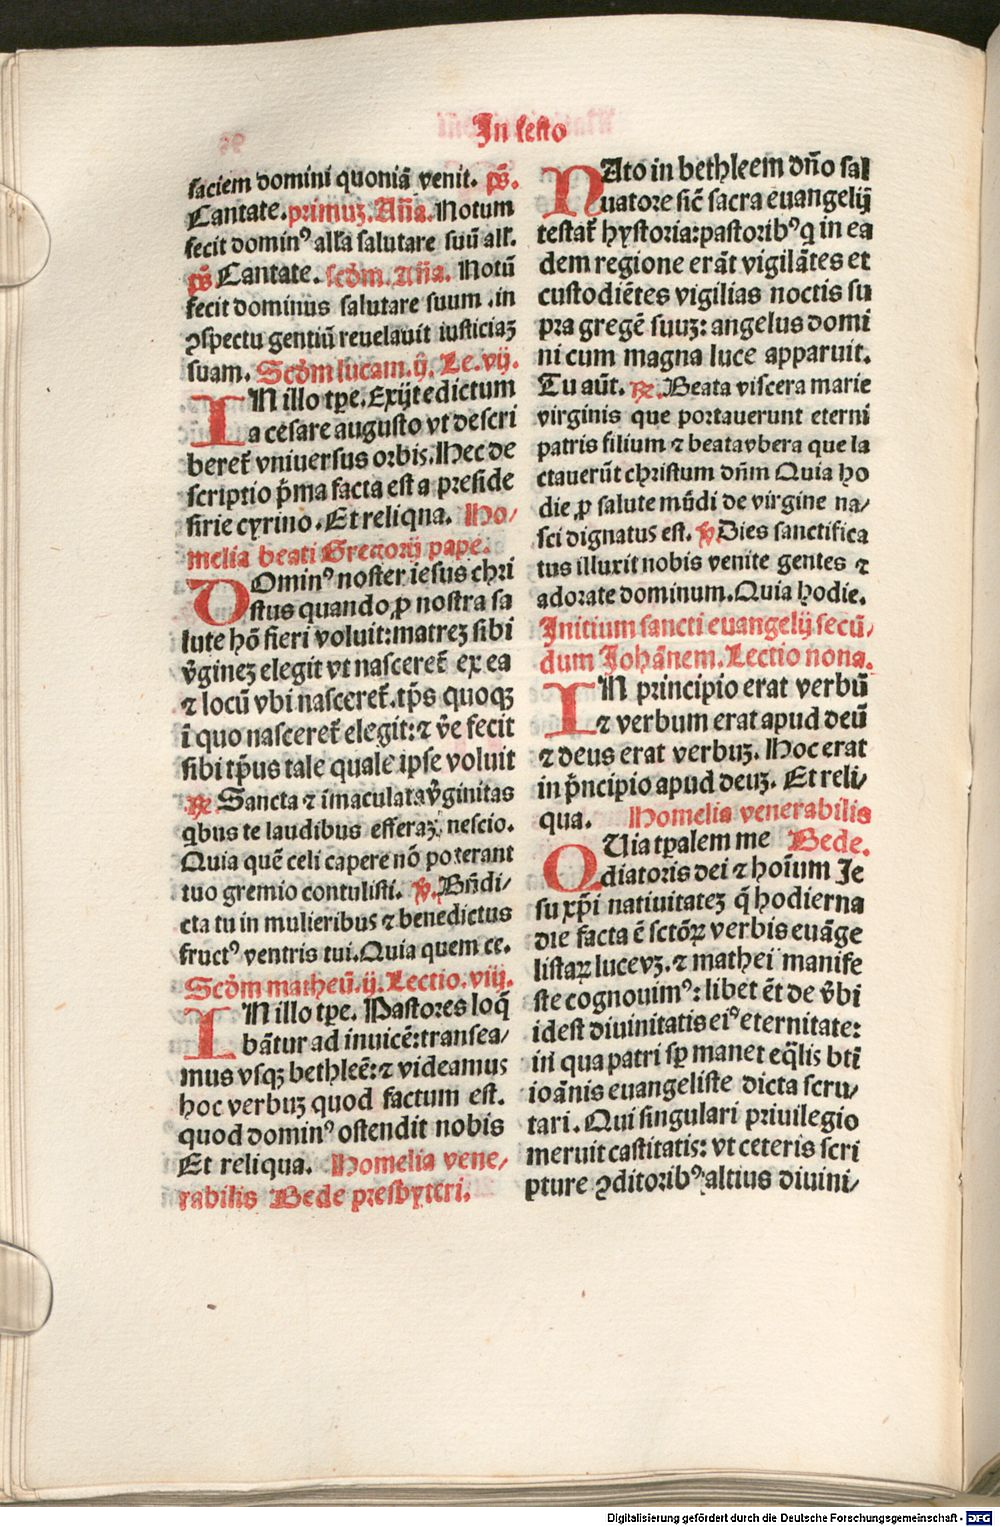 In festo
faciem domini quoniã venit. ps̃.
Cantate. primuʒ. Añā. Notum
fecit dominꝰ alľa salutare suũ alľ.
ps̃ Cantate. scḋm. Añā. Notũ
fecit dominus salutare suum .in
ꝯspectu gentiũ reuelauit iusticiaʒ
suam. Scḋm lucam. ij. Le. vij.
IN illo tꝑe. Exijt edictum
a cesare augusto vt descri
beret̃ vniuersus orbis. Hec de
scriptio p̃ma facta est a preside
sirie cyrino. Et reliqna. Ho/
melia beati Gregorij pape.
DOminꝰ noster iesus chri
stus quando ꝓ nostra sa
lute hõ fieri voluit: matreʒ sibi
ṽgineʒ elegit vt nasceret̃ ex ea
⁊ locũ vbi nasceret̃. tp̃s quoqʒ
ĩ quo nasceret̃ elegit: ⁊ ṽe fecit
sibi tp̃us tale quale ipse voluit
℞. Sancta ⁊ ĩmaculata ṽginitas
qbus te laudibus efferaʒ nescio.
Quia quẽ celi capere nõ poterant
tuo gremio contulisti. ℣. Bñdi/
cta tu in mulieribus ⁊ benedictus
fructꝰ ventris tui. Quia quem ce.
Scḋm matheũ. ij. Lectio. viij.
IN illo tꝑe. Pastores loq̃
bãtur ad inuicẽ: transea/
mus vsqʒ bethleẽ: ⁊ videamus
hoc verbuʒ quod factum est.
quod dominꝰ ostendit nobis
Et reliqua. Homelia vene/
rabilis Bede presbyteri.
NAto in bethleem dño sal
uatore sič sacra euangelij
testat̃ hystoria: pastoribꝰ q in ea
dem regione erãt vigilãtes et
custodiẽtes vigilias noctis su
pra gregẽ suuʒ: angelus domi
ni cum magna luce apparuit.
Tu aũt. ℞. Beata viscera marie
virginis que portauerunt eterni
patris filium ⁊ beata vbera que la
ctauerũt christum dñm Quia ho
die ꝓ salute mũdi de virgine na/
sci dignatus est. ℣ Dies sanctifica
tus illuxit nobis venite gentes ⁊
adorate dominum. Quia hodie.
Initium sancti euangelij secũ/
dum Johãnem. Lectio nona.
IN principio erat verbũ
⁊ verbum erat apud deũ
⁊ deus erat verbuʒ. Hoc erat
in p̃ncipio apud deuʒ. Et reli/
qua. Homelia venerabilis
QUia tꝑalem me Bede.
diatoris dei ⁊ hoĩum Je
su xp̃i natiuitateʒ q̃ hodierna
die facta ẽ sctõꝝ verbis euãge
listaꝝ luce vʒ. ⁊ mathei manife
ste cognouimꝰ: libet ẽt de ṽbi
idest diuinitatis eiꝰ eternitate:
in qua patri sꝑ manet eq̃lis bt̃i
ioãnis euangeliste dicta scru/
tari. Qui singulari priuilegio
meruit castitatis: vt ceteris scri
pture ꝯditoribꝰ altius diuini/
Digitalisierung gefördert durch die Deutsche Forschungsgemeinschaft - DFG